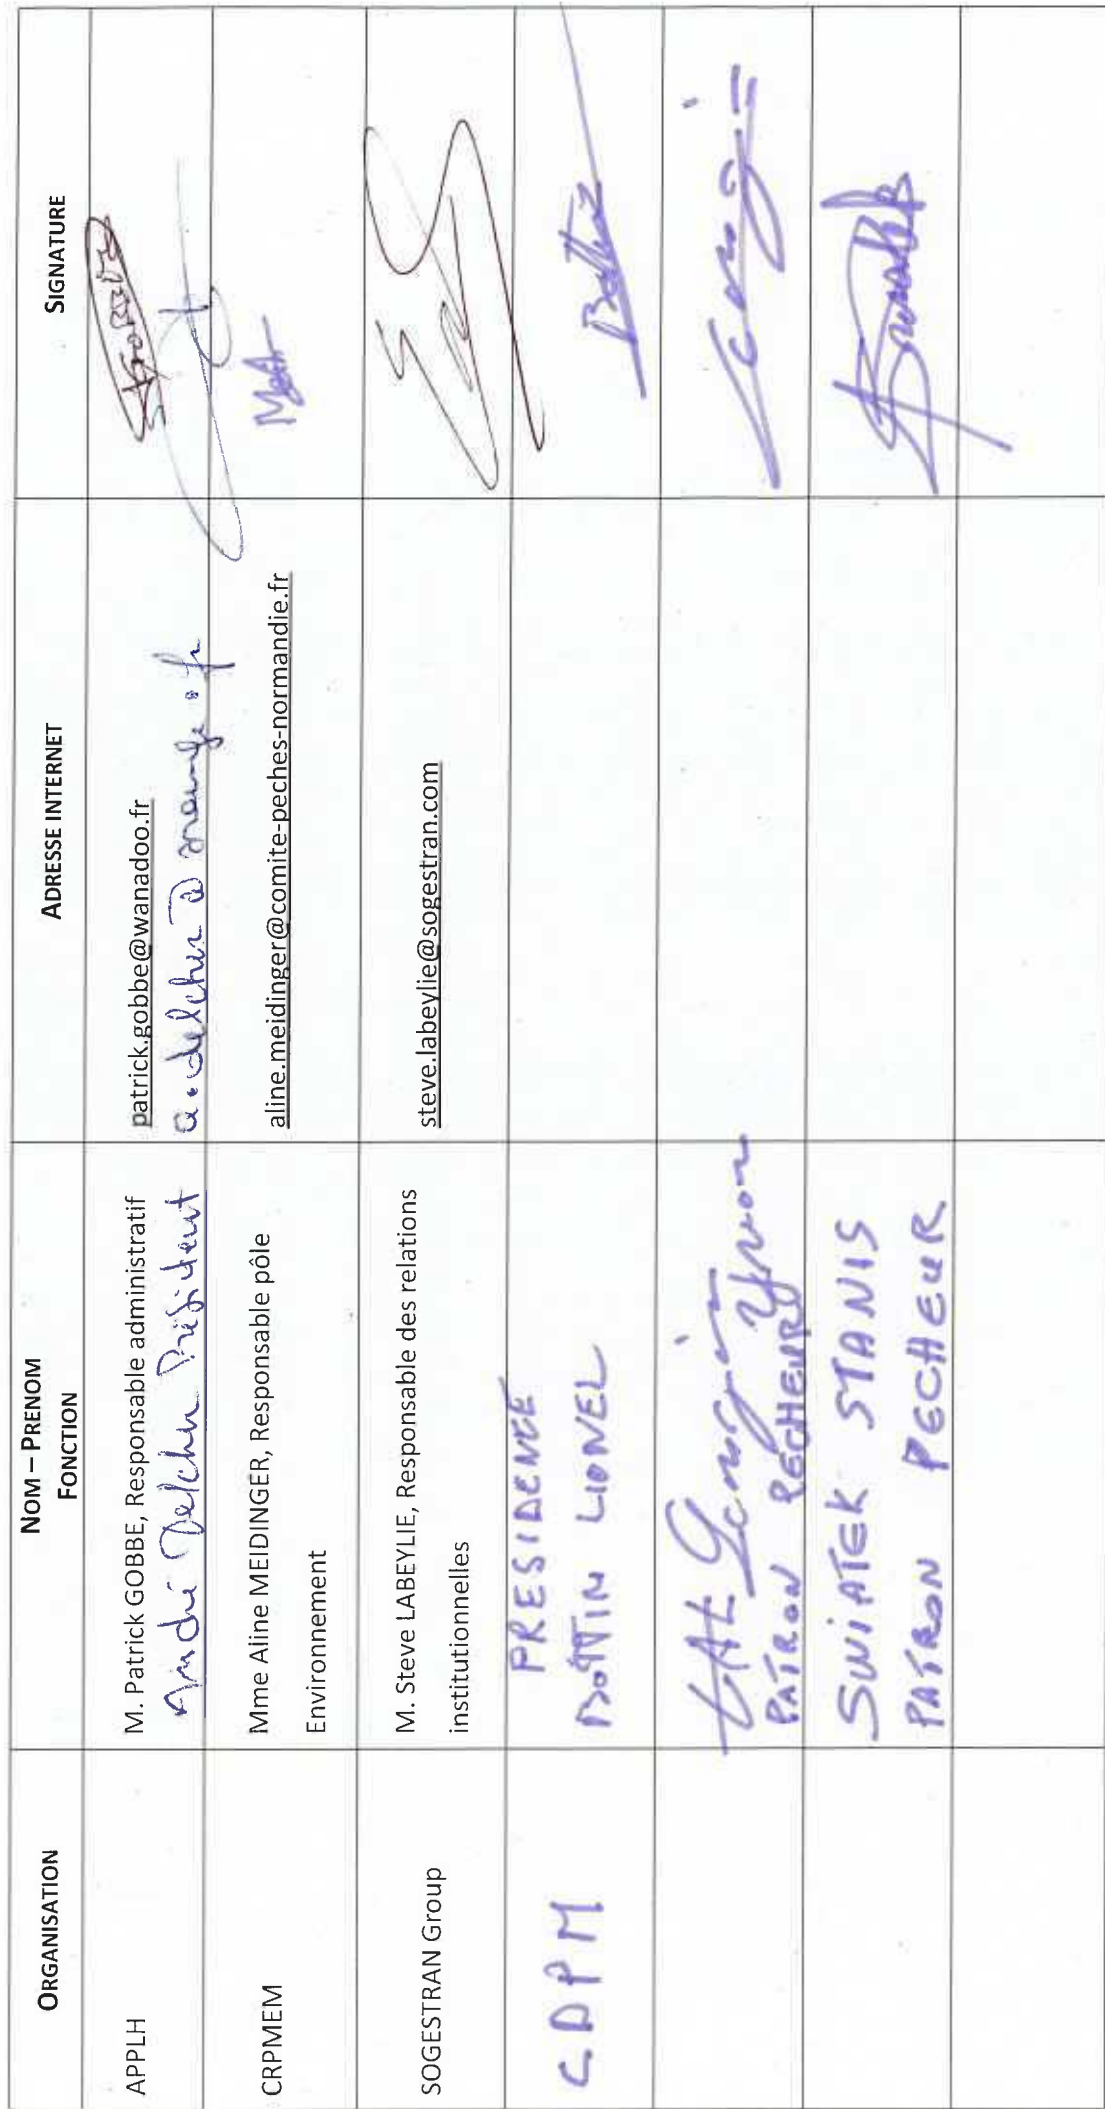 ORGANISATION
NOM – PRENOM
FONCTION
ADRESSE INTERNET
SIGNATURE
APPLH
M. Patrick GOBBE, Responsable administratif
patrick.gobbe@wanadoo.fr
André Delchu Président
CRPMEM
Mme Aline MEIDINGER, Responsable pôle
Environnement
aline.meidinger@comite-peches-normandie.fr
SOGESTRAN Group
M. Steve LABEYLIE, Responsable des relations
institutionnelles
steve.labeylie@sogestran.com
CDPM
PRESIDENCE
BOTTIN LIONEL
Yvon
PATRON PECHEUR
SWIATEK STANIS
PATRON PECHEUR